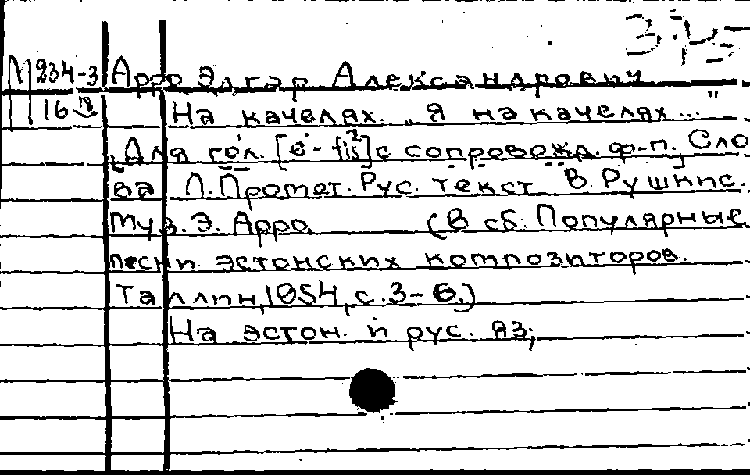 3.
М 234-3 Арро Элгар Александрович
16 На качелях. „Я на качелях..."
[Для гол. [e'-fis²] с сопровожд. ф-п.] Сло
ва Л. Промет. Рус. текст В. Рушкис.
Муз. Э. Арро (В сб. Популярные
песни эстонских композиторов.
Таллин, 1954, с. 3-6.)
На эстон. и рус. яз;